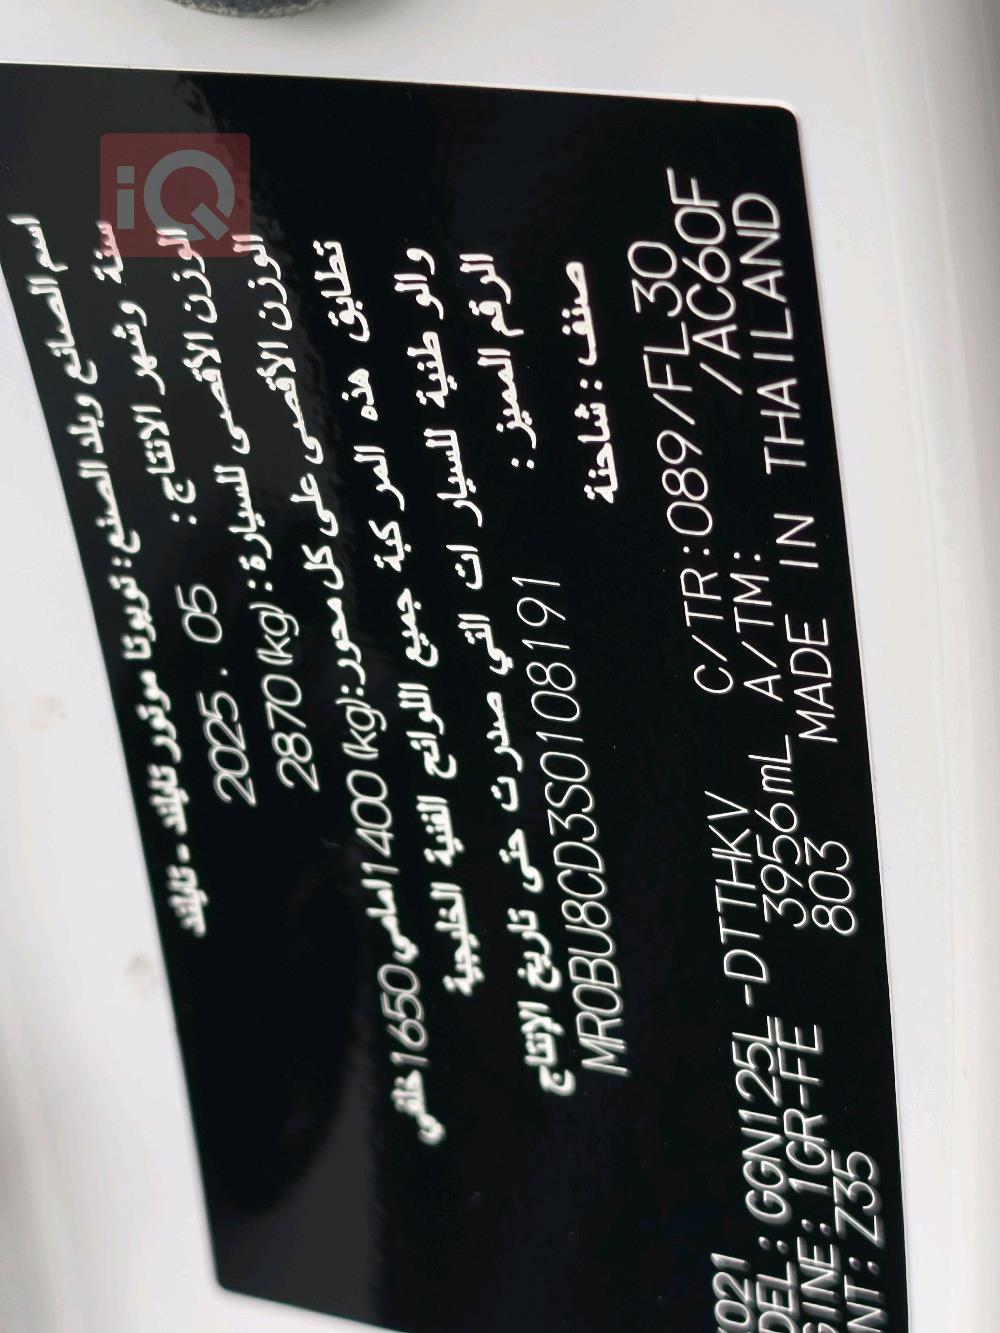 iQ
اسم الصانع وبلد الصنع: تويوتا موتور تايلاند - تايلاند
سنة وشهر الانتاج: 2025. 05
الوزن الأقصى للسيارة: 2870 (kg)
الوزن الأقصى على كل محور: (kg) 1400 امامي 1650 خلفي
تطابق هذه المركبة جميع اللوائح الفنية الخليجية
والوطنية للسيارات التي صدرت حتى تاريخ الإنتاج
الرقم المميز: MR0BU8CD3S0108191
صنف: شاحنة
021 C/TR:089/FL30
DEL: GGN125L-DTTHKV A/TM: /AC60F
GINE: 1GR-FE 3956mL MADE IN THAILAND
NT: Z35 803